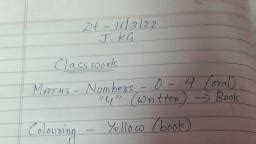 Dt - 16/3/22
J.KG
Classwork
Maths - Numbers - 0 - 4 (oral)
"4" (written) → Book
Colouring - Yellow (book)